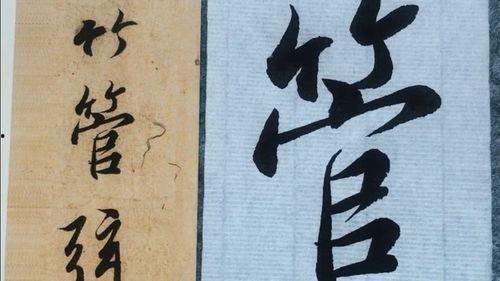 竹管弦
管